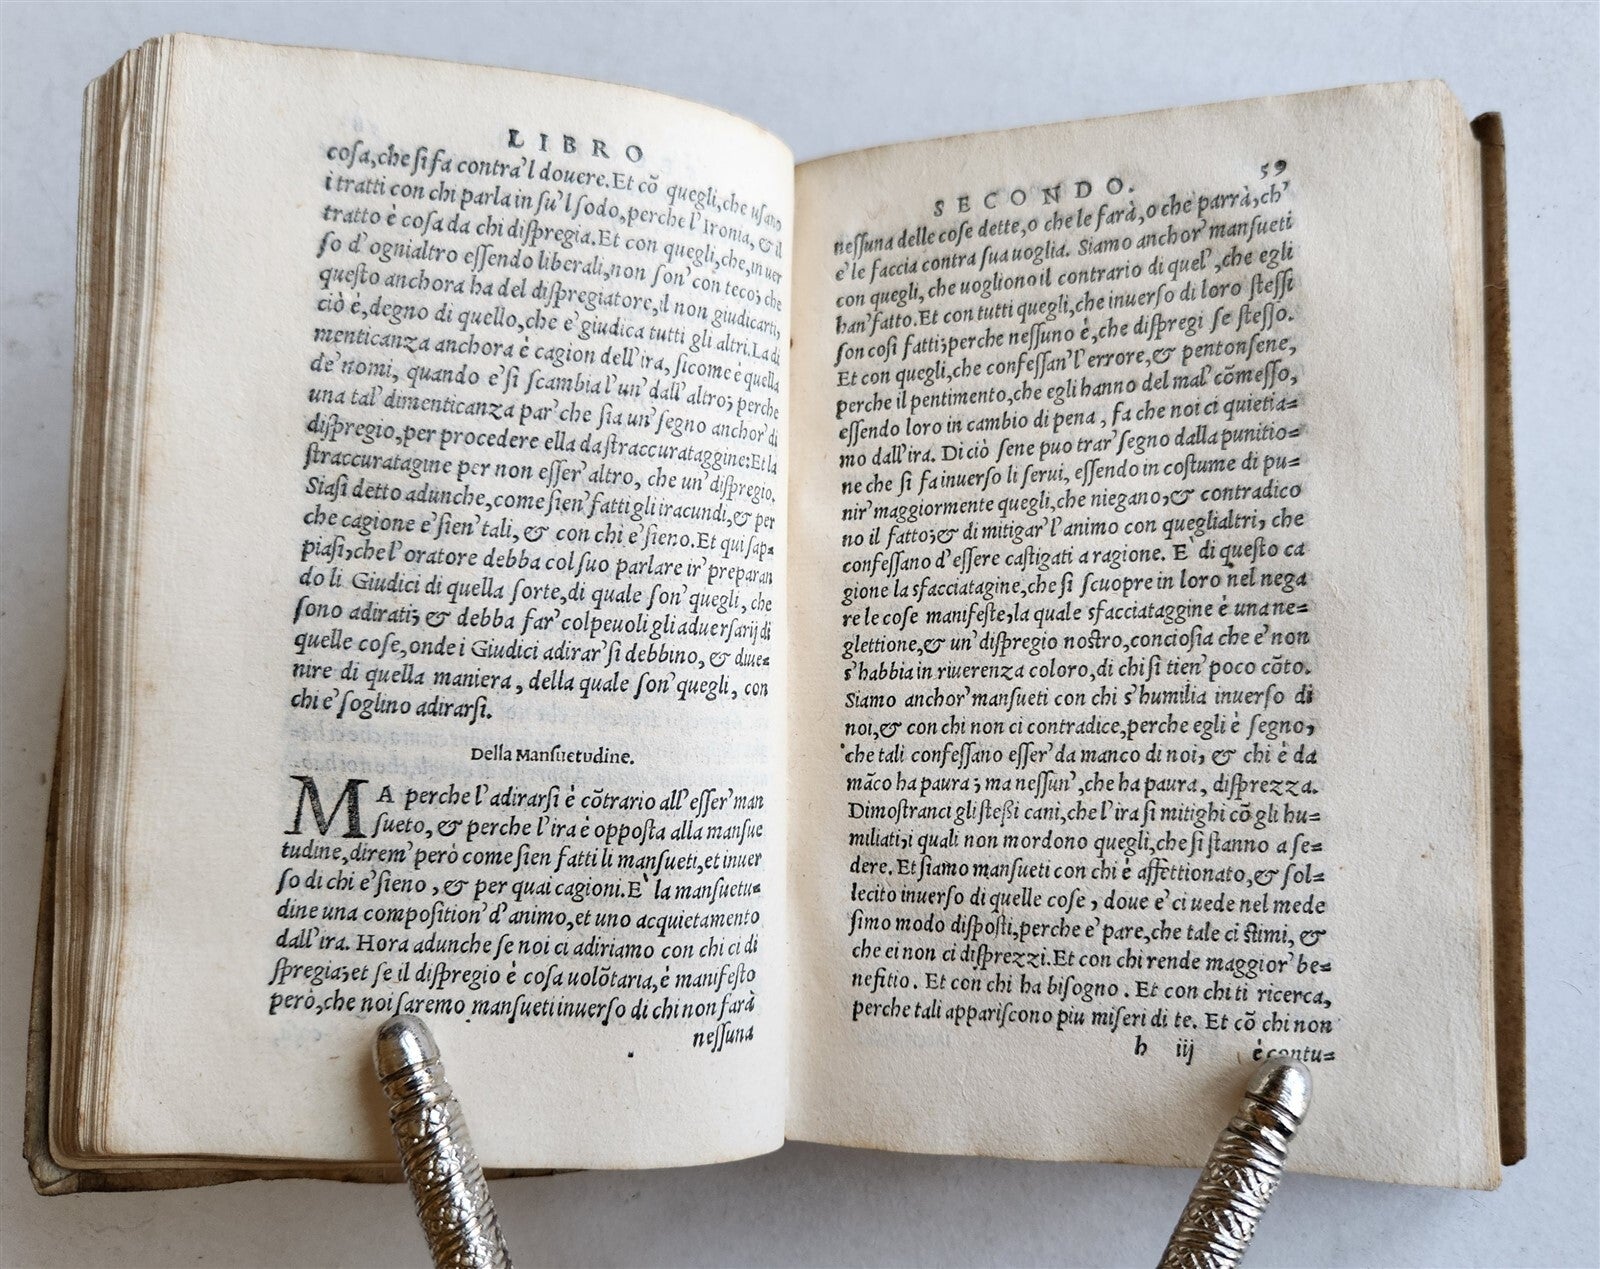 LIBRO
cosa, che si fa contra'l douere. Et cõ quegli, che usano
i tratti con chi parla in su'l sodo, perche l'Ironia, & il
tratto è cosa da chi dispregia. Et con quegli, che, in uer
so d'ognialtro essendo liberali, non son' con teco; che
questo anchora ha del dispregiatore, il non giudicarti,
ciò è, degno di quello, che e' giudica tutti gli altri. La di
menticanza anchora è cagion dell'ira, sicome è quella
de' nomi, quando e' si scambia l'un' dall'altro; perche
una tal' dimenticanza par' che sia un' segno anchor' di
dispregio, per procedere ella da straccurataggine: Et la
straccuratagine per non esser' altro, che un' dispregio.
Siasi detto adunche, come sien' fatti gli iracundi, & per
che cagione e' sien' tali, & con chi e' sieno. Et qui sap=
piasi, che l'oratore debba col suo parlare ir' preparan
do li Giudici di quella sorte, di quale son' quegli, che
sono adirati; & debba far' colpeuoli gli aduersarij di
quelle cose, onde i Giudici adirar' si debbino, & diue=
nire di quella maniera, della quale son' quegli, con
chi e' soglino adirarsi.
Della Mansuetudine.
MA perche l'adirarsi è cõtrario all'esser' man
sueto, & perche l'ira è opposta alla mansue
tudine, direm' però come sien fatti li mansueti, et inuer
so di chi e' sieno, & per quai cagioni. E' la mansuetu=
dine una composition' d'animo, et uno acquietamento
dall'ira. Hora adunche se noi ci adiriamo con chi ci di
spregia; et se il dispregio è cosa uolõtaria, è manifesto
però, che noi saremo mansueti inuerso di chi non farà
nessuna
59
SECONDO.
nessuna delle cose dette, o che le farà, o che parrà, ch'
e' le faccia contra sua uoglia. Siamo anchor' mansueti
con quegli, che uogliono il contrario di quel', che egli
han' fatto. Et con tutti quegli, che inuerso di loro stessi
son così fatti; perche nessuno è, che dispregi se stesso.
Et con quegli, che confessan' l'errore, & pentonsene,
perche il pentimento, che egli hanno del mal' cõmesso,
essendo loro in cambio di pena, fa che noi ci quietia=
mo dall'ira. Di ciò sene puo trar' segno dalla punitio=
ne che si fa inuerso li serui, essendo in costume di pu=
nir' maggiormente quegli, che niegano, & contradico
no il fatto; & di mitigar' l'animo con quegli altri, che
confessano d'essere castigati a ragione. E' di questo ca
gione la sfacciatagine, che si scuopre in loro nel nega
re le cose manifeste, la quale sfacciataggine è una ne=
glettione, & un' dispregio nostro, conciosia che e' non
s'habbia in riuerenza coloro, di chi si tien' poco cõto.
Siamo anchor' mansueti con chi s'humilia inuerso di
noi, & con chi non ci contradice, perche egli è segno,
che tali confessano esser' da manco di noi, & chi è da
mãco ha paura; ma nessun', che ha paura, disprezza.
Dimostranci gli steßi cani, che l'ira si mitighi cõ gli hu=
miliati; i quali non mordono quegli, che si stanno a se=
dere. Et siamo mansueti con chi è affettionato, & sol=
lecito inuerso di quelle cose, doue e' ci uede nel mede
simo modo disposti, perche e' pare, che tale ci stimi, &
che ei non ci disprezzi. Et con chi rende maggior' be=
nefitio. Et con chi ha bisogno. Et con chi ti ricerca,
perche tali appariscono piu miseri di te. Et cõ chi non
h iij è contu=